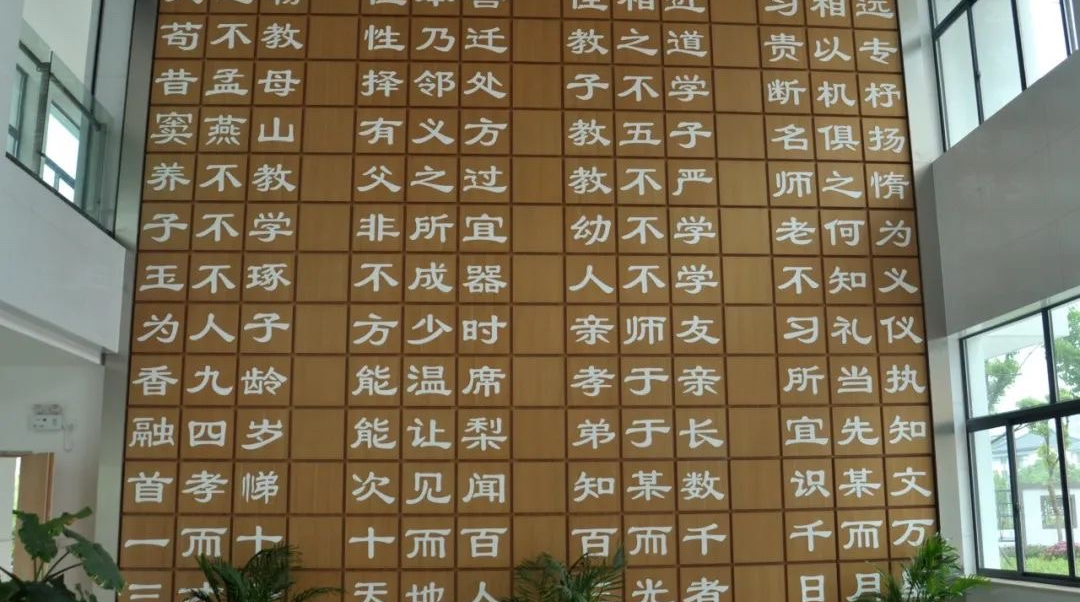 性本善 性相近 习相远
苟不教 性乃迁 教之道 贵以专
昔孟母 择邻处 子不学 断机杼
窦燕山 有义方 教五子 名俱扬
养不教 父之过 教不严 师之惰
子不学 非所宜 幼不学 老何为
玉不琢 不成器 人不学 不知义
为人子 方少时 亲师友 习礼仪
香九龄 能温席 孝于亲 所当执
融四岁 能让梨 弟于长 宜先知
首孝悌 次见闻 知某数 识某文
一而十 十而百 百而千 千而万
三 天地人 光者 日月